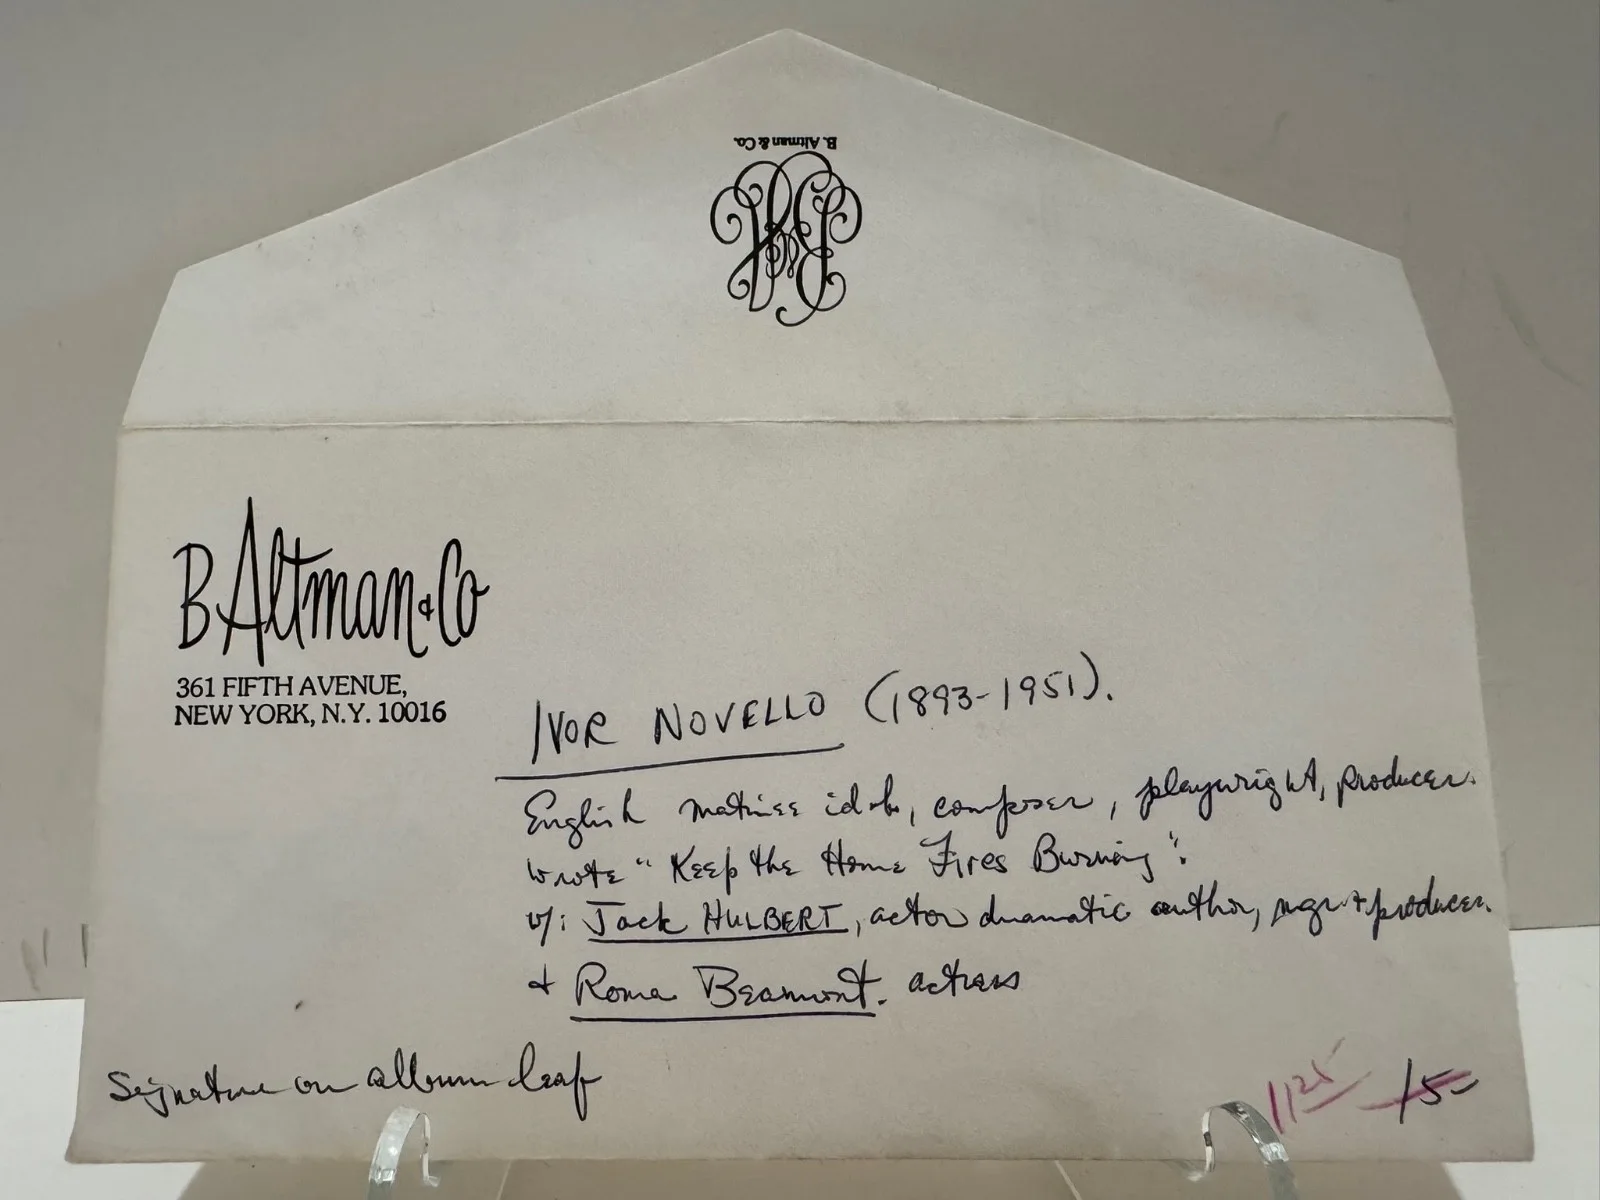 B. Altman & Co.
B Altman & Co
361 FIFTH AVENUE,
NEW YORK, N.Y. 10016
IVOR NOVELLO (1893-1951).
English matinee idol, composer, playwright, producer.
wrote "Keep the Home Fires Burning".
w/: Jack HULBERT, actor dramatic author, mgr + producer.
+ Roma Beaumont. actress
Signature on album leaf